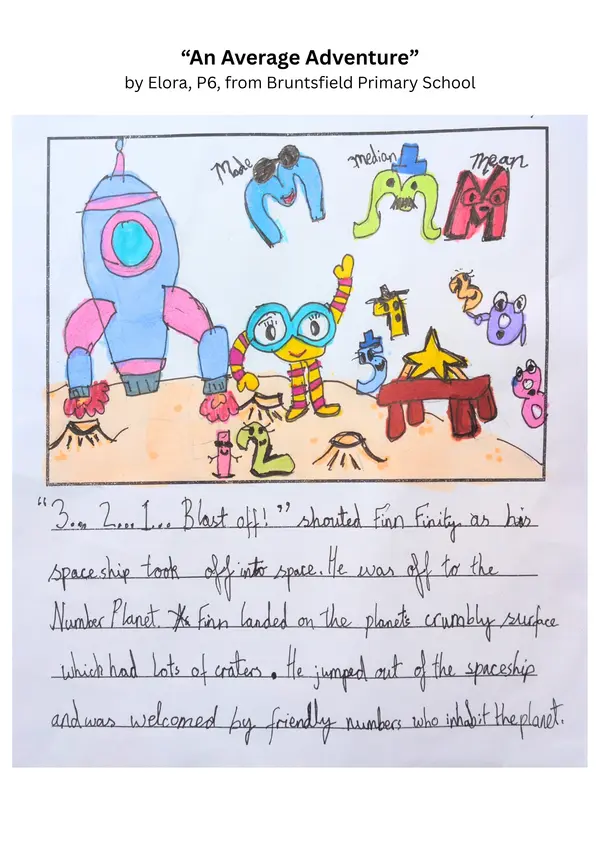 “An Average Adventure”
by Elora, P6, from Bruntsfield Primary School
Mode
median
mean
"3... 2... 1... Blast off!" shouted Finn Finity as his
spaceship took off into space. He was off to the
Number Planet. Finn landed on the planets crumbly surface
which had lots of craters. He jumped out of the spaceship
and was welcomed by friendly numbers who inhabit the planet.